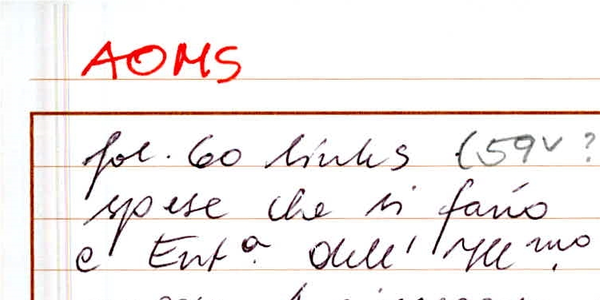 AOMS
fol. 60 links (59v ?
spese che si fano
e Entª dell' Illmo